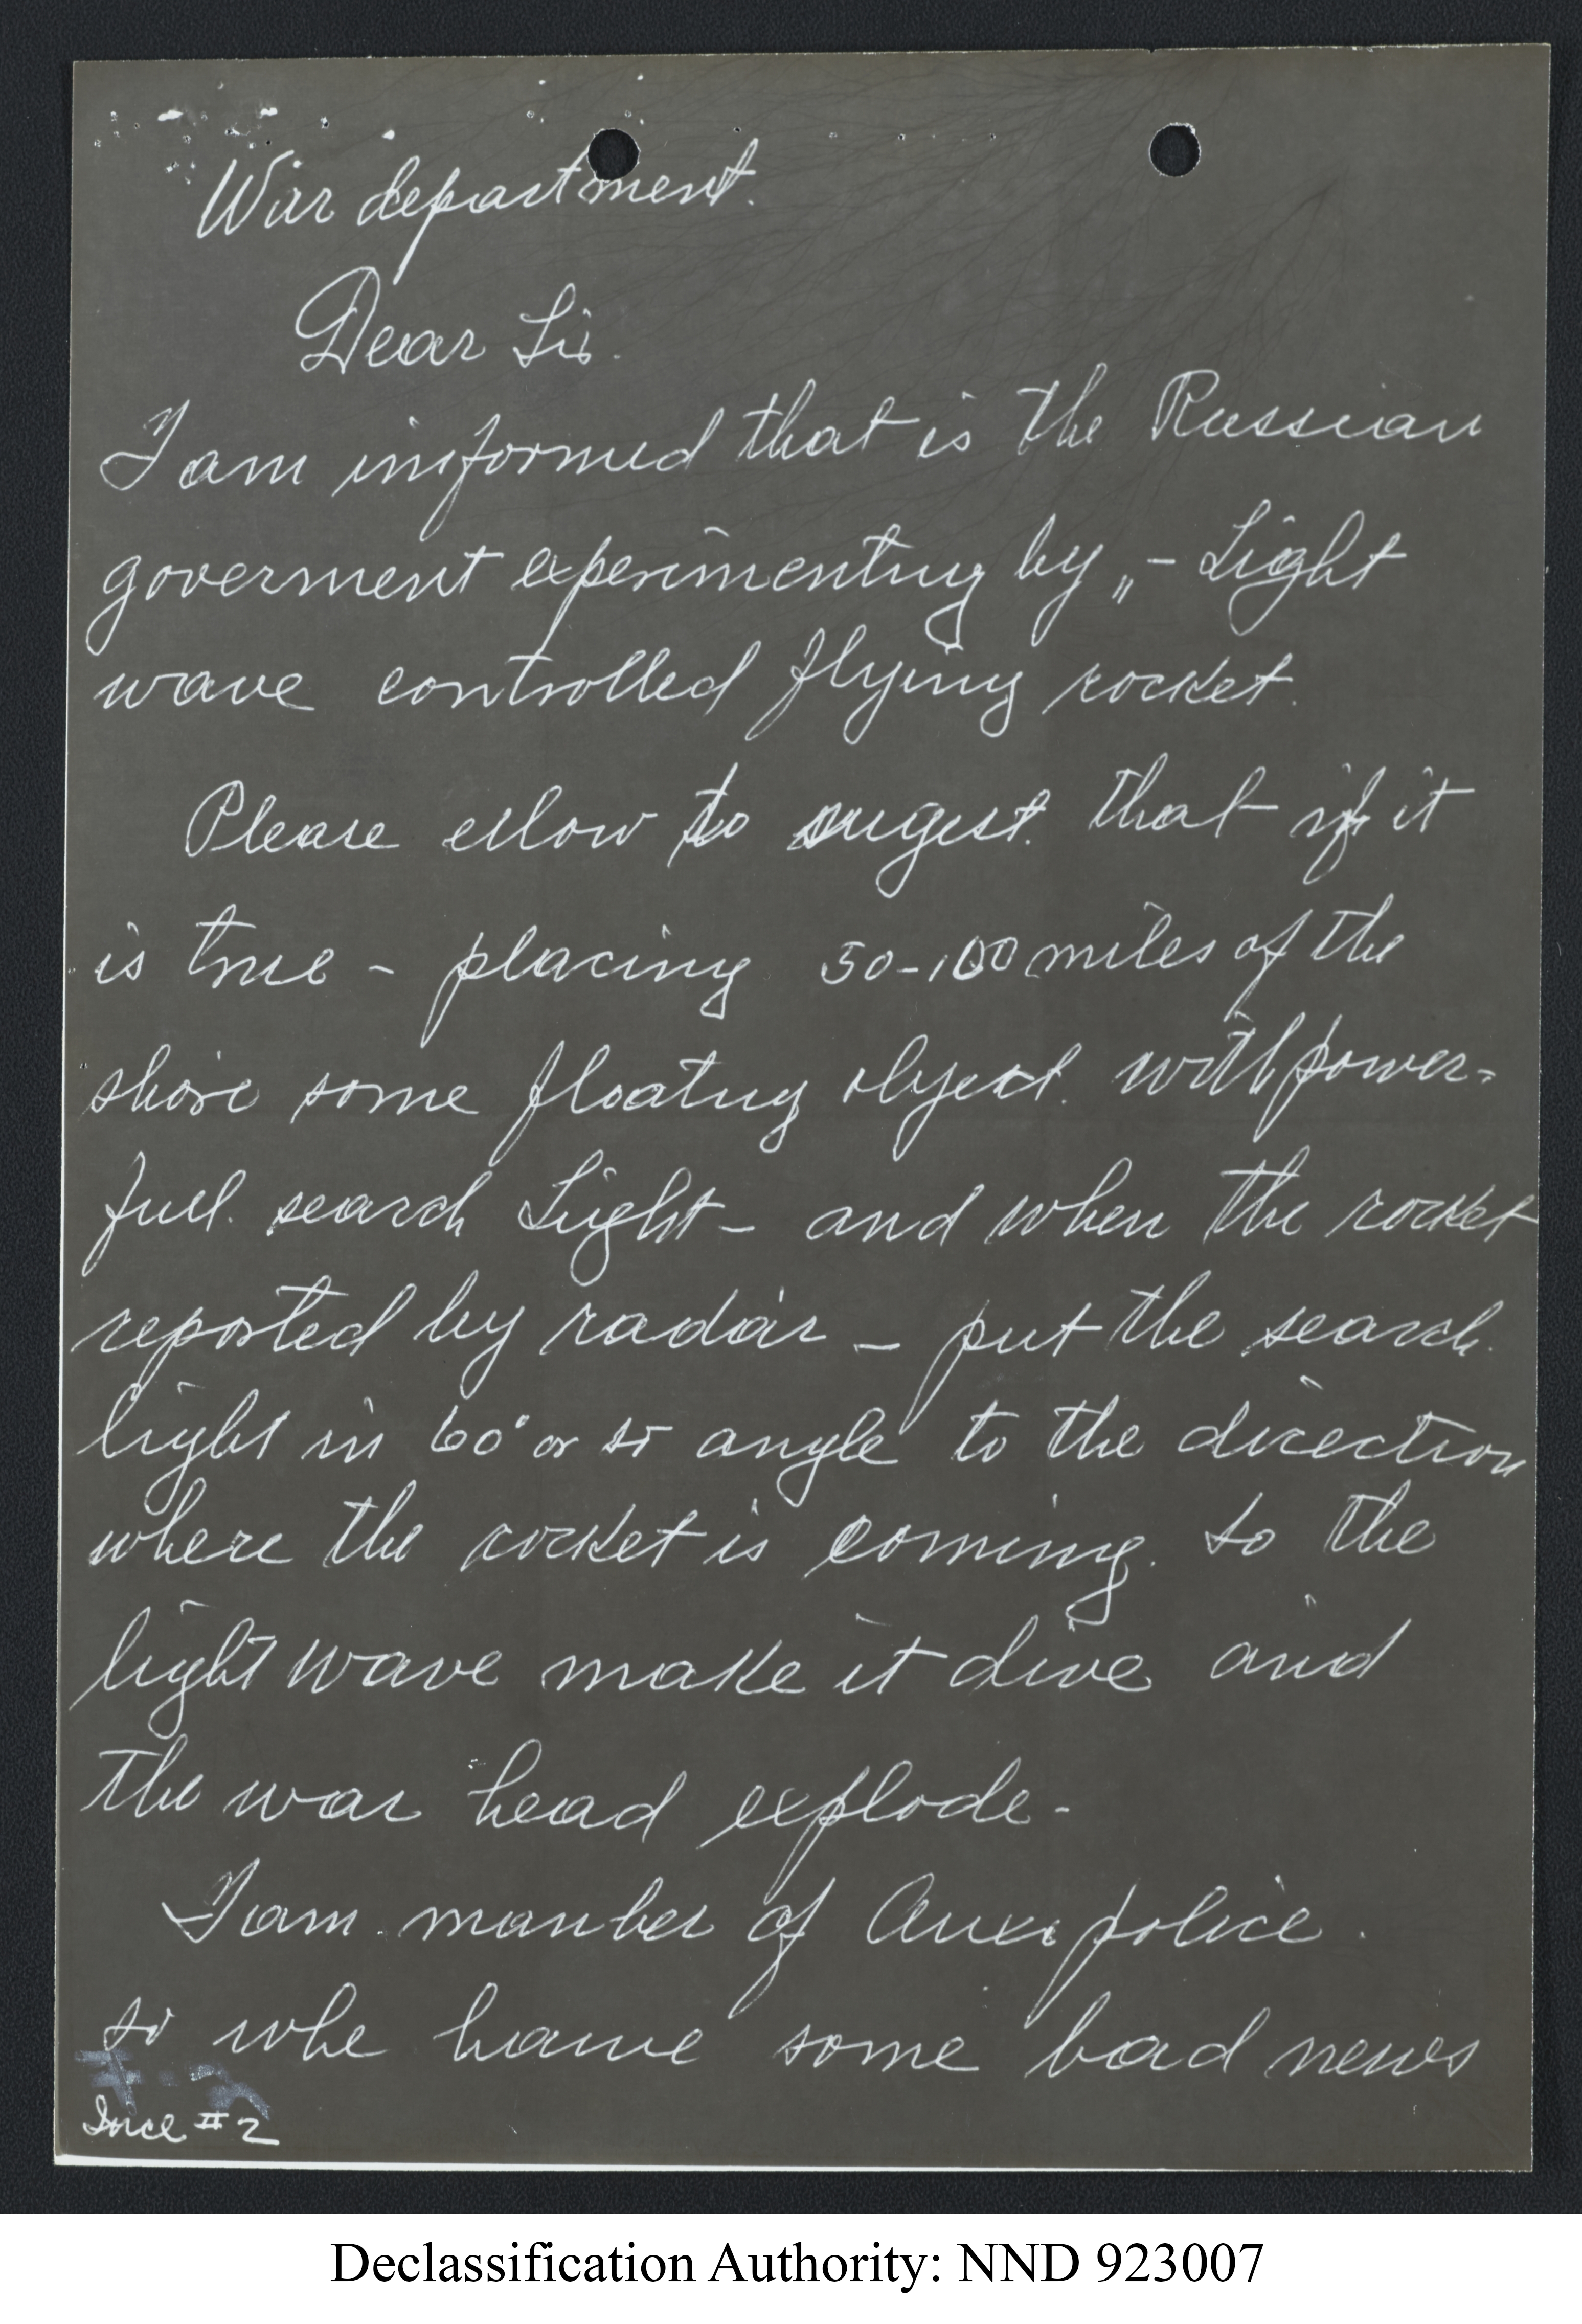 War department.
Dear Sir.
I am informed that is the Russian
goverment experimenting by „- Light
wave controlled flying rocket.
Please ellow to sugest. that if it
is true - placing 50-100 miles of the
shore some floating object. with power-
full. search Light - and when the rocket
reported by radar - put the search.
light in 60° or so angle to the direction
where the rocket is coming. so the
light wave make it dive and
the war head explode -
I am. manber of police.
so whe have some bad news
Incl #2
Declassification Authority: NND 923007